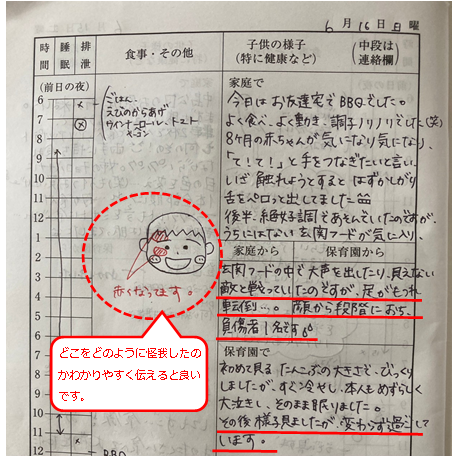 6月16日日曜
時間
睡眠
排泄
食事・その他
子供の様子
(特に健康など)
(中段は連絡欄)
(前日の夜)
6
7
8
9
10
11
12
1
2
3
4
5
6
7
8
9
10
11
12
ごはん、
えびのからあげ
ウインナーロール、トマト
赤くなってます。
どこをどのように怪我したの
かわかりやすく伝えると良い
です。
BBQ
家庭で
今日はお友達宅でBBQでした。
よく食べ、よく動き、調子ノリノリでした(笑)
8ヶ月の赤ちゃんが気になり気になり、
「て!て!」と手をつなぎたいと言い、
いざ 触れようとすると はずかしがり
舌をペロッと出してました
後半、絶好調であそんでいたのですが、
うちにはない玄関フードが気に入り、
家庭から 保育園から
玄関フードの中で大声を出したり、見えない
敵と戦っていたのですが、足がもつれ
転倒…。顔から段階におち、
負傷者1名です
保育園で
初めて見る たんこぶの大きさで、びっくり
しましたが、すぐ冷やし、本人もめずらしく
大泣きし、そのまま眠りました。
その後 様子見ましたが、変わらず過ごして
います。